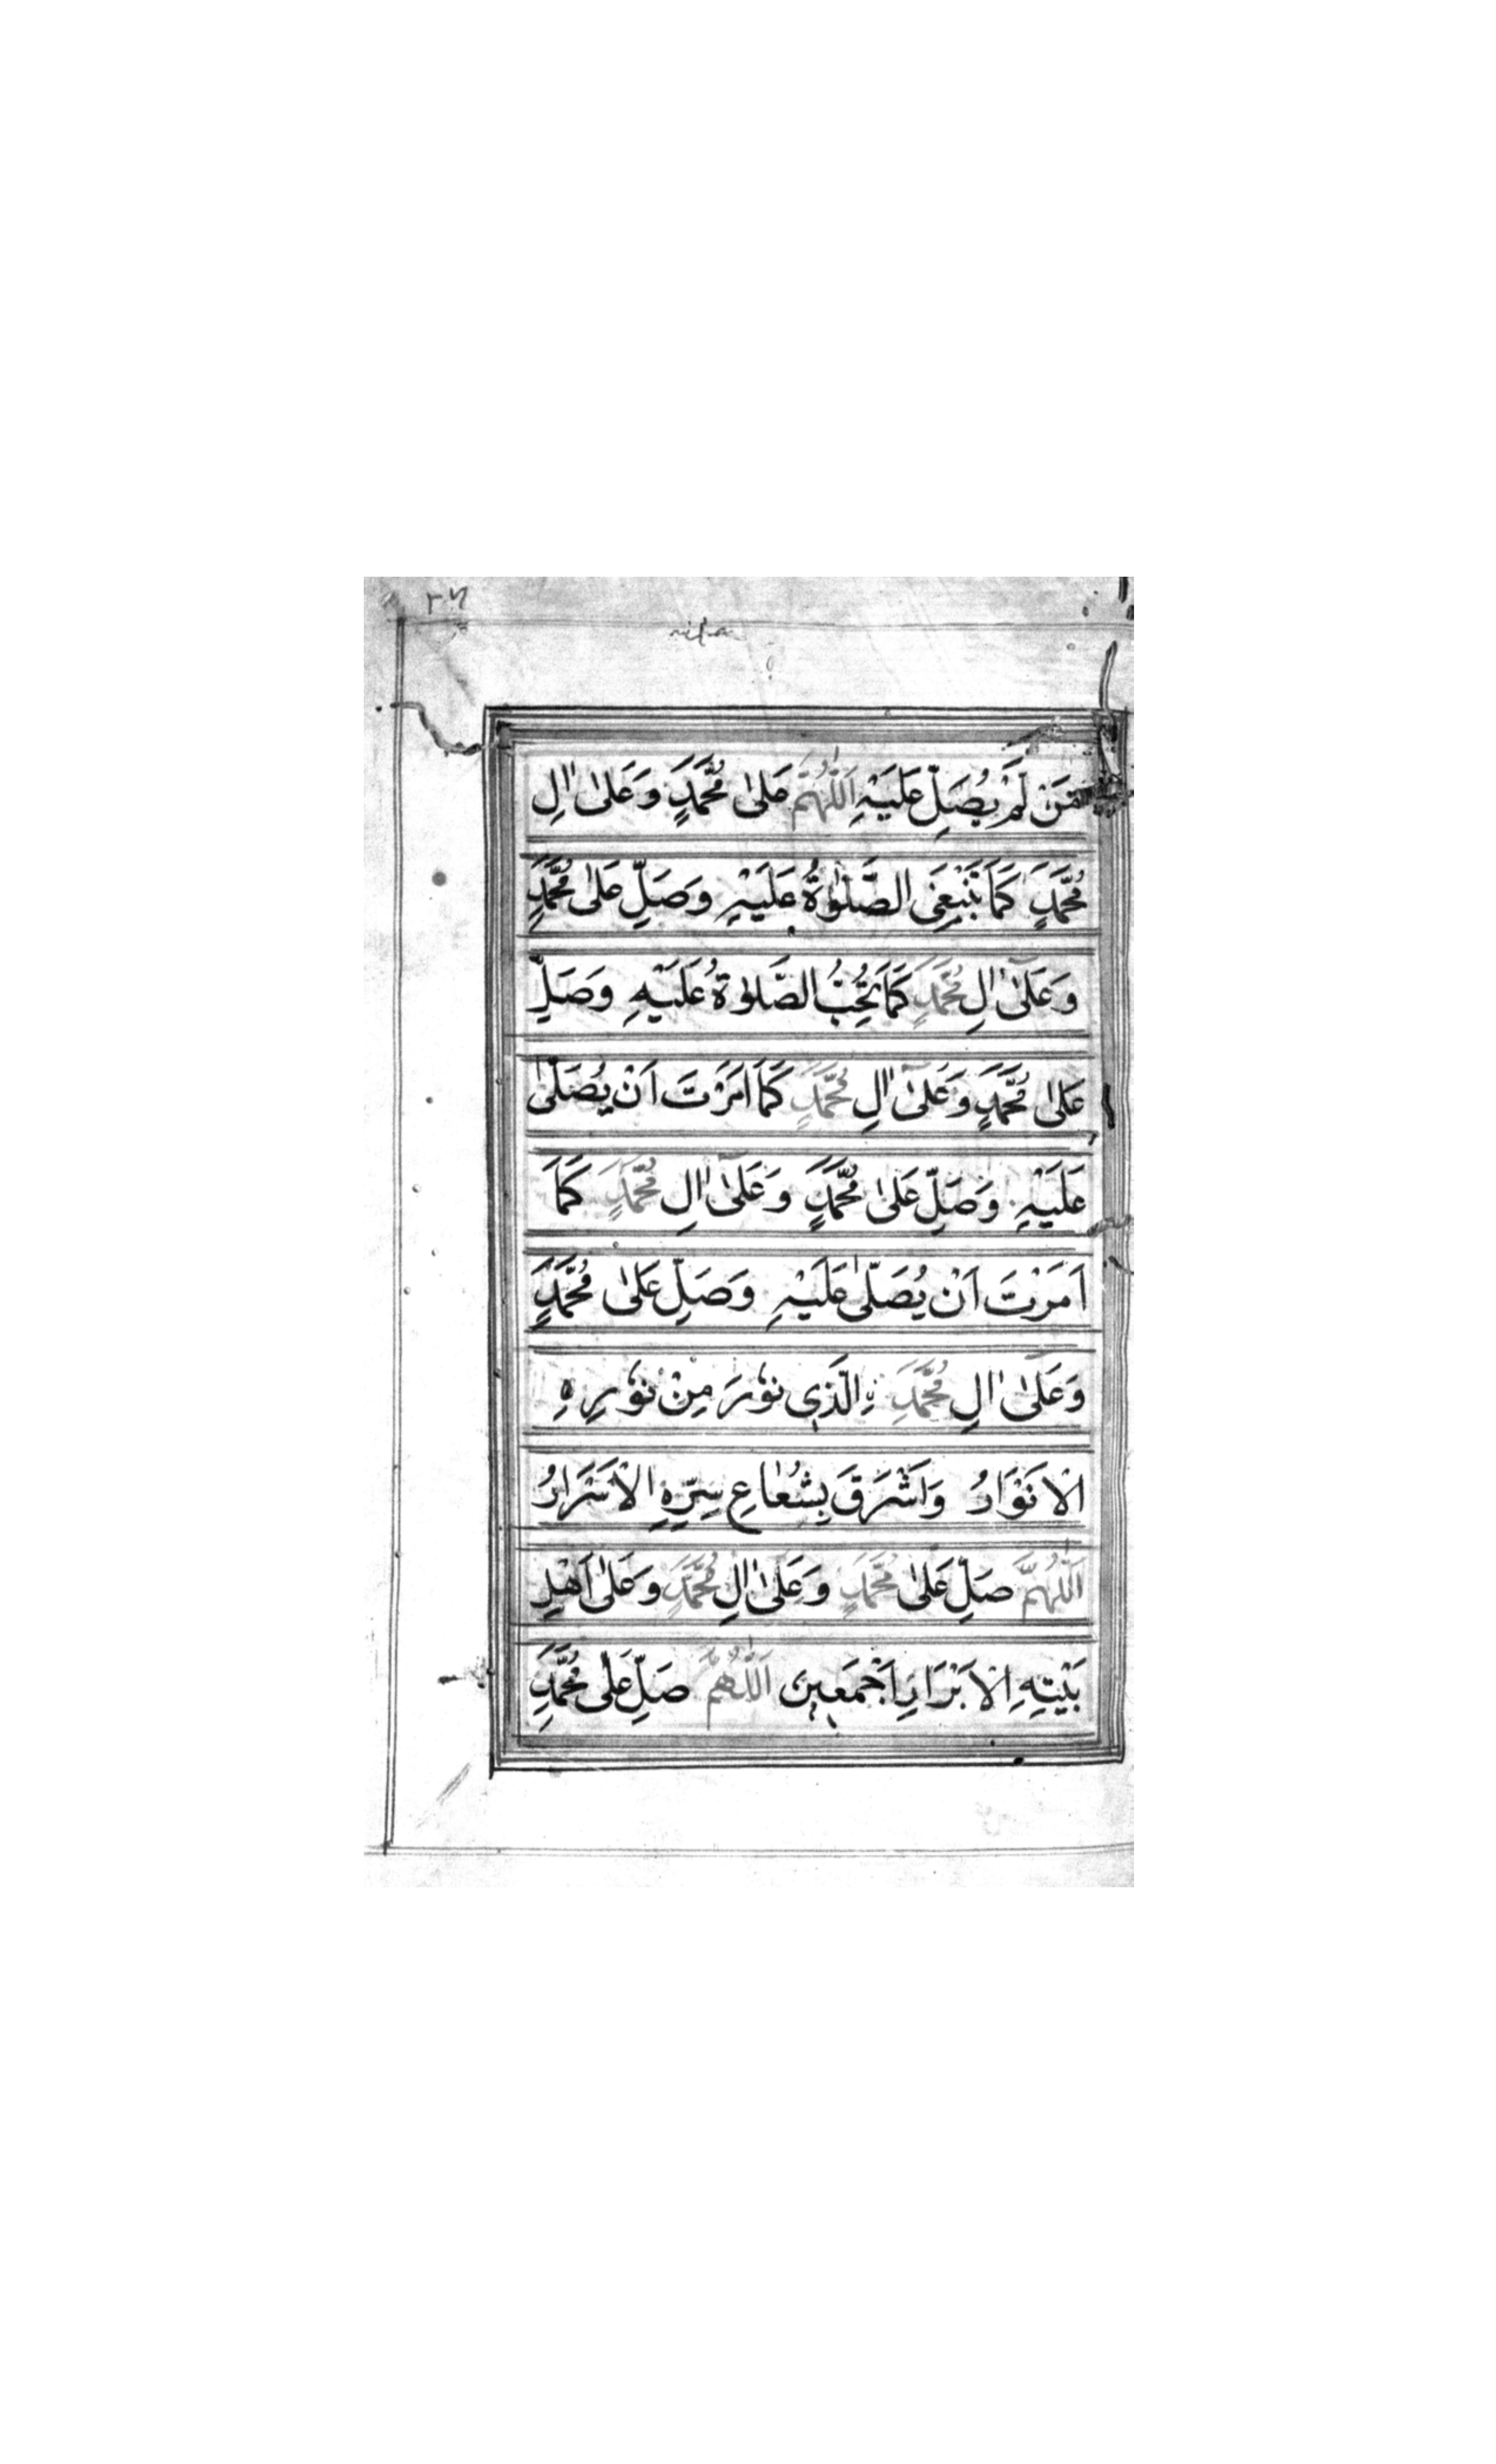 ٢٦
مَنْ لَمْ يُصَلِّ عَلَيْهِ اَللّٰهُمَّ عَلىٰ مُحَمَّدٍ وَعَلىٰ اٰلِ
مُحَمَّدٍ كَمَا تَنْبَغِى الصَّلٰوةُ عَلَيْهِ وَصَلِّ عَلىٰ مُحَمَّدٍ
وَعَلىٰٓ اٰلِ مُحَمَّدٍ كَمَا تُحِبُّ الصَّلوٰةُ عَلَيْهِ وَصَلِّ
عَلىٰ مُحَمَّدٍ وَعَلىٰٓ اٰلِ مُحَمَّدٍ كَمَا اَمَرْتَ اَنْ يُصَلّىٰ
عَلَيْهِ وَصَلِّ عَلىٰ مُحَمَّدٍ وَعَلىٰٓ اٰلِ مُحَمَّدٍ كَمَا
اَمَرْتَ اَنْ يُصَلّىٰ عَلَيْهِ وَصَلِّ عَلىٰ مُحَمَّدٍ
وَعَلىٰٓ اٰلِ مُحَمَّدِ ۨالَّذِى نُوْرَ مِنْ نُوْرِهِ
الْاَنْوَارُ وَاَشْرَقَ بِشُعَاعِ سِرِّهِ الْاَسْرَارُ
اَللّٰهُمَّ صَلِّ عَلىٰ مُحَمَّدٍ وَعَلىٰٓ اٰلِ مُحَمَّدٍ وَعَلىٰٓ اَهْلِ
بَيْتِهِ الْاَبْرَارِ اَجْمَعِيْنَ اَللّٰهُمَّ صَلِّ عَلىٰ مُحَمَّدٍ